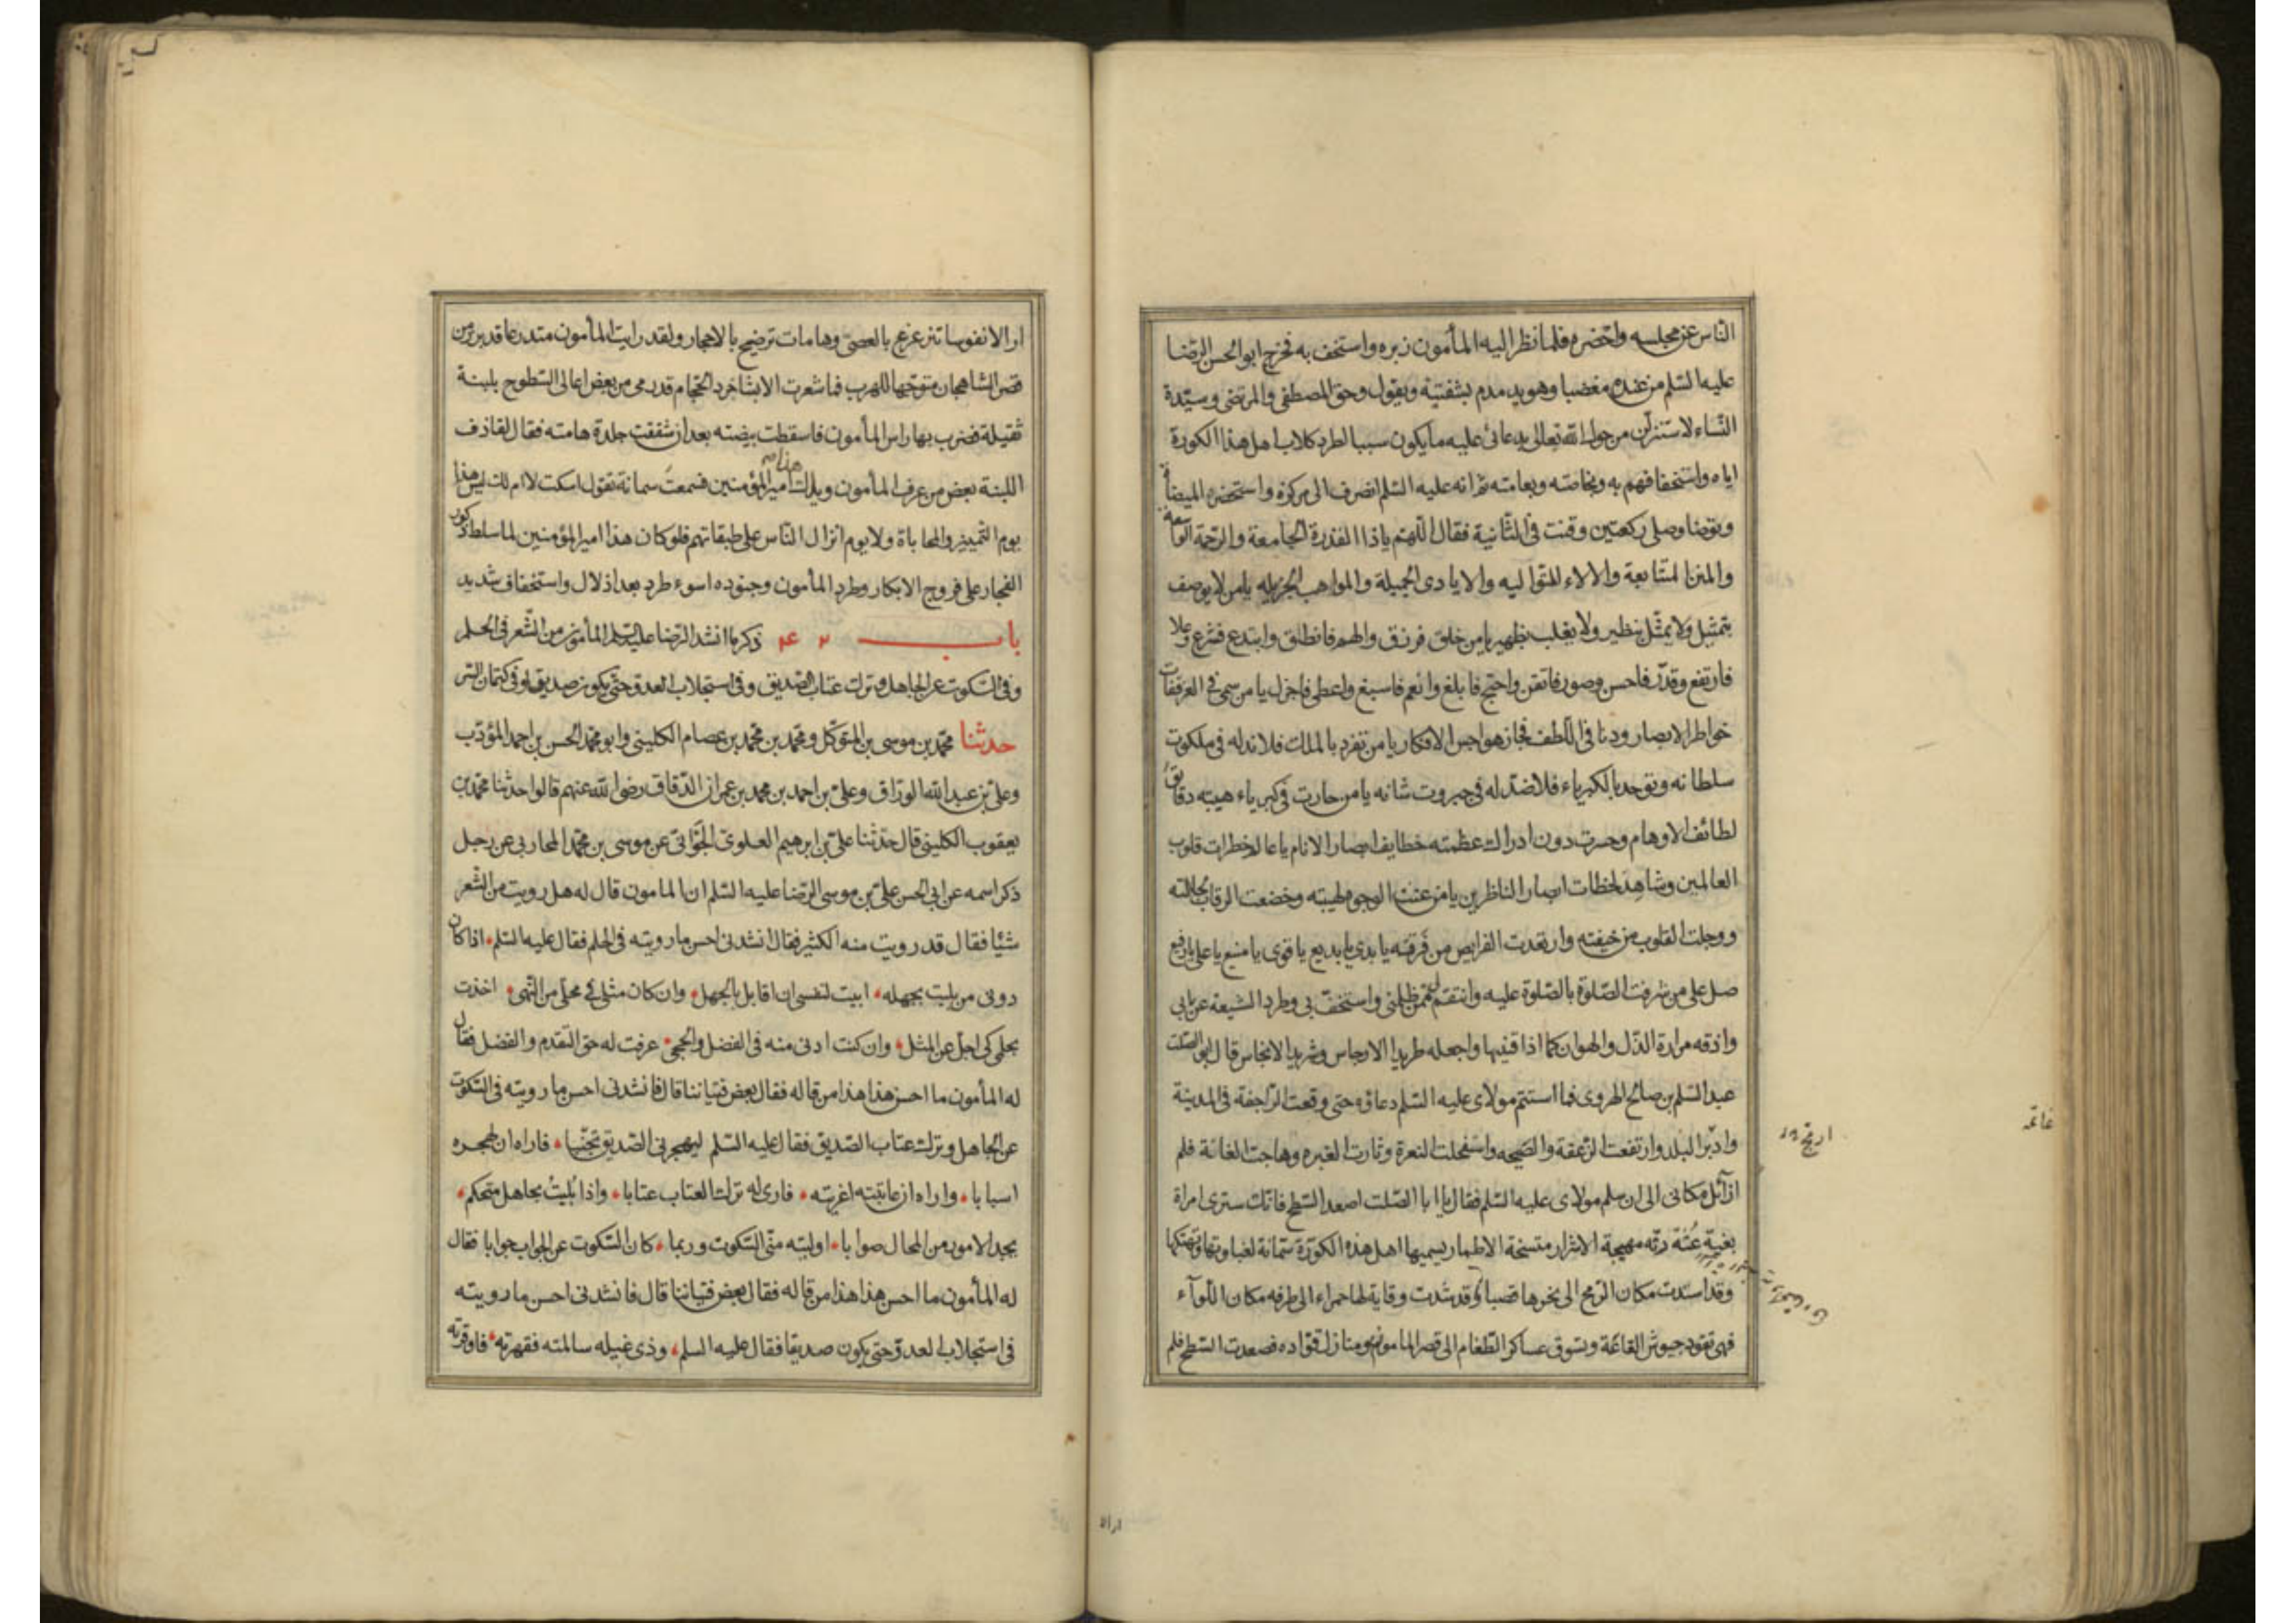 الناس عن مجلسه واحضره فلما نظر اليه المأمون زبره واستخف به فخرج ابو الحسن الرضا
عليه السلم من عنده مغضبا وهو يدمدم بشفتيه ويقول وحق المصطفى والمرتضى وسيدة
النساء لاستنزلن من حول الله تعالى بدعائي عليه ما يكون سببا لطرد كلاب اهل هذا الكورة
اياه واستخفافهم به وبخاصته وبعامته ثم انه عليه السلم انصرف الى مركزه واستحضر الميضاة
وتوضا وصلى ركعتين وقنت في الثانية فقال اللهم ياذا القدرة الجامعة والرحمة الواسعة
والمنن المتتابعة والالاء المتواليه والايادى الجميلة والمواهب الجزيله يامن لا يوصف
بتمثيل ولا يمثل بنظير ولا يغلب بظهير يامن خلق فرزق والهم فانطق وابتدع فشرع وعلا
فارتفع وقدر فاحسن وصور فاتقن واحتج فابلغ وانعم فاسبغ واعطى فاجزل يا من سمى في العز ففات
خواطر الابصار ودنا في اللطف فجاز هواجس الافكار يا من تفرد بالملك فلا ند له في ملكوت
سلطانه وتوحد بالكبرياء فلا ضد له في جبروت شانه يا من حارت في كبرياء هيبته دقايق
لطائف الاوهام وحسرت دون ادراك عظمته خطايف ابصار الانام يا عالم خطرات قلوب
العالمين وشاهد لحظات ابصار الناظرين يا من عنت الوجوه لهيبته وخضعت الرقاب لجلالته
ووجلت القلوب من خيفته وارتعدت الفرايص من فرقه يا بدئ يا بديع يا قوى يا منيع يا على يا رفيع
صل على من شرفت الصلوة بالصلوة عليه وانتقم لى ممن ظلمنى واستخف بى وطرد الشيعة عن بابى
واذقه مرارة الذل والهوان كما اذاقنيها واجعله طريد الارجاس وشريد الانجاس قال ابو الصلت
عبد السلم بن صالح الهروى فما استتم مولاى عليه السلم دعاؤه حتى وقعت الراجفة في المدينة
وادبر البلد وارتفعت الزعقة والصيحه واستفحلت النعرة وثارت الغبره وهاجت الغائة فلم
ازايل مكانى الى ان سلم مولاى عليه السلم فقال لى يا ابا الصلت اصعد السطح فانك سترى امراة
بغية عثة رثه مهيجة الاشرار متسخة الاطمار يسميها اهل هذه الكورة سمانة لغباوتها وتهتكها
وقد اسندت مكان الرمح الى نحرها قصبا وقد شدت وقاية لها حمراء الى طرفه مكان اللوآء
فهى تقود جيوش القاغة وتسوق عساكر الطغام الى قصر المامون ومنازل قواده فصعدت السطح فلم
ار الا نفوسا تنزعزع بالعصى وهامات ترضخ بالاحجار ولقد رايت المأمون متدرعا قد برز من
قصر الشاهجان متوجها للهرب فما شعرت الا بشاجرد الحجام قد رمى من بعض اعالى السطوح بلبنة
ثقيلة فضرب بها راس المأمون فاسقطت بيضته بعد ان شققت جلدة هامته فقال لقاذف
اللبنة بعض من عرف المأمون ويلك هذا امير المؤمنين فسمعت سمانة تقول اسكت لا ام لك ليس هذا
يوم التمييز والمحاباة ولا يوم انزال الناس على طبقاتهم فلو كان هذا امير المؤمنين لما سلط ذكور
الفجار على فروج الابكار وطرد المأمون وجنوده اسوء طرد بعد اذلال واستخفاف شديد
باب ٤٣ ذكر ما انشد الرضا عليه السلم المأمون من الشعر في الحلم
وفى السكوت عن الجاهل وترك عتاب الصديق وفى استجلاب العدو حتى يكون صديقا وفى كتمان السر
حدثنا محمد بن موسى بن المتوكل ومحمد بن محمد بن عصام الكلينى وابو محمد الحسن بن احمد المؤدب
وعلى بن عبد الله الوراق وعلى بن احمد بن محمد بن عمران الدقاق رضى الله عنهم قالوا حدثنا محمد بن
يعقوب الكلينى قال حدثنا على بن ابرهيم العلوى الجوانى عن موسى بن محمد المحاربى عن رجل
ذكر اسمه عن ابى الحسن على بن موسى الرضا عليه السلم ان المامون قال له هل رويت من الشعر
شيئا فقال قد رويت منه الكثير فقال انشدنى احسن ما رويته في الحلم فقال عليه السلم اذا كان
دونى من بليت بجهله ابيت لنفسى ان اقابل بالجهل وان كان مثلى في محلى من النهى اخذت
بحلمى كى اجل عن المثل وان كنت ادنى منه في الفضل والحجى عرفت له حق التقدم والفضل فقال
له المأمون ما احسن هذا هذا من قاله فقال بعض فتياننا قال فانشدنى احسن ما رويته في السكوت
عن الجاهل وترك عتاب الصديق فقال عليه السلم ليهجرنى الصديق تجنبا فاراه ان لهجره
اسبابا واراه ان عاتبته اغريته فارى له ترك العتاب عتابا واذا بليت بجاهل متحكم
يجد الامور من المحال صوابا اوليته منى السكوت وربما كان السكوت عن الجواب جوابا فقال
له المأمون ما احسن هذا هذا من قاله فقال بعض فتياننا قال فانشدنى احسن ما رويته
في استجلاب العدو حتى يكون صديقا فقال عليه السلم وذى غيله سالمته فقهرته فاوقرته